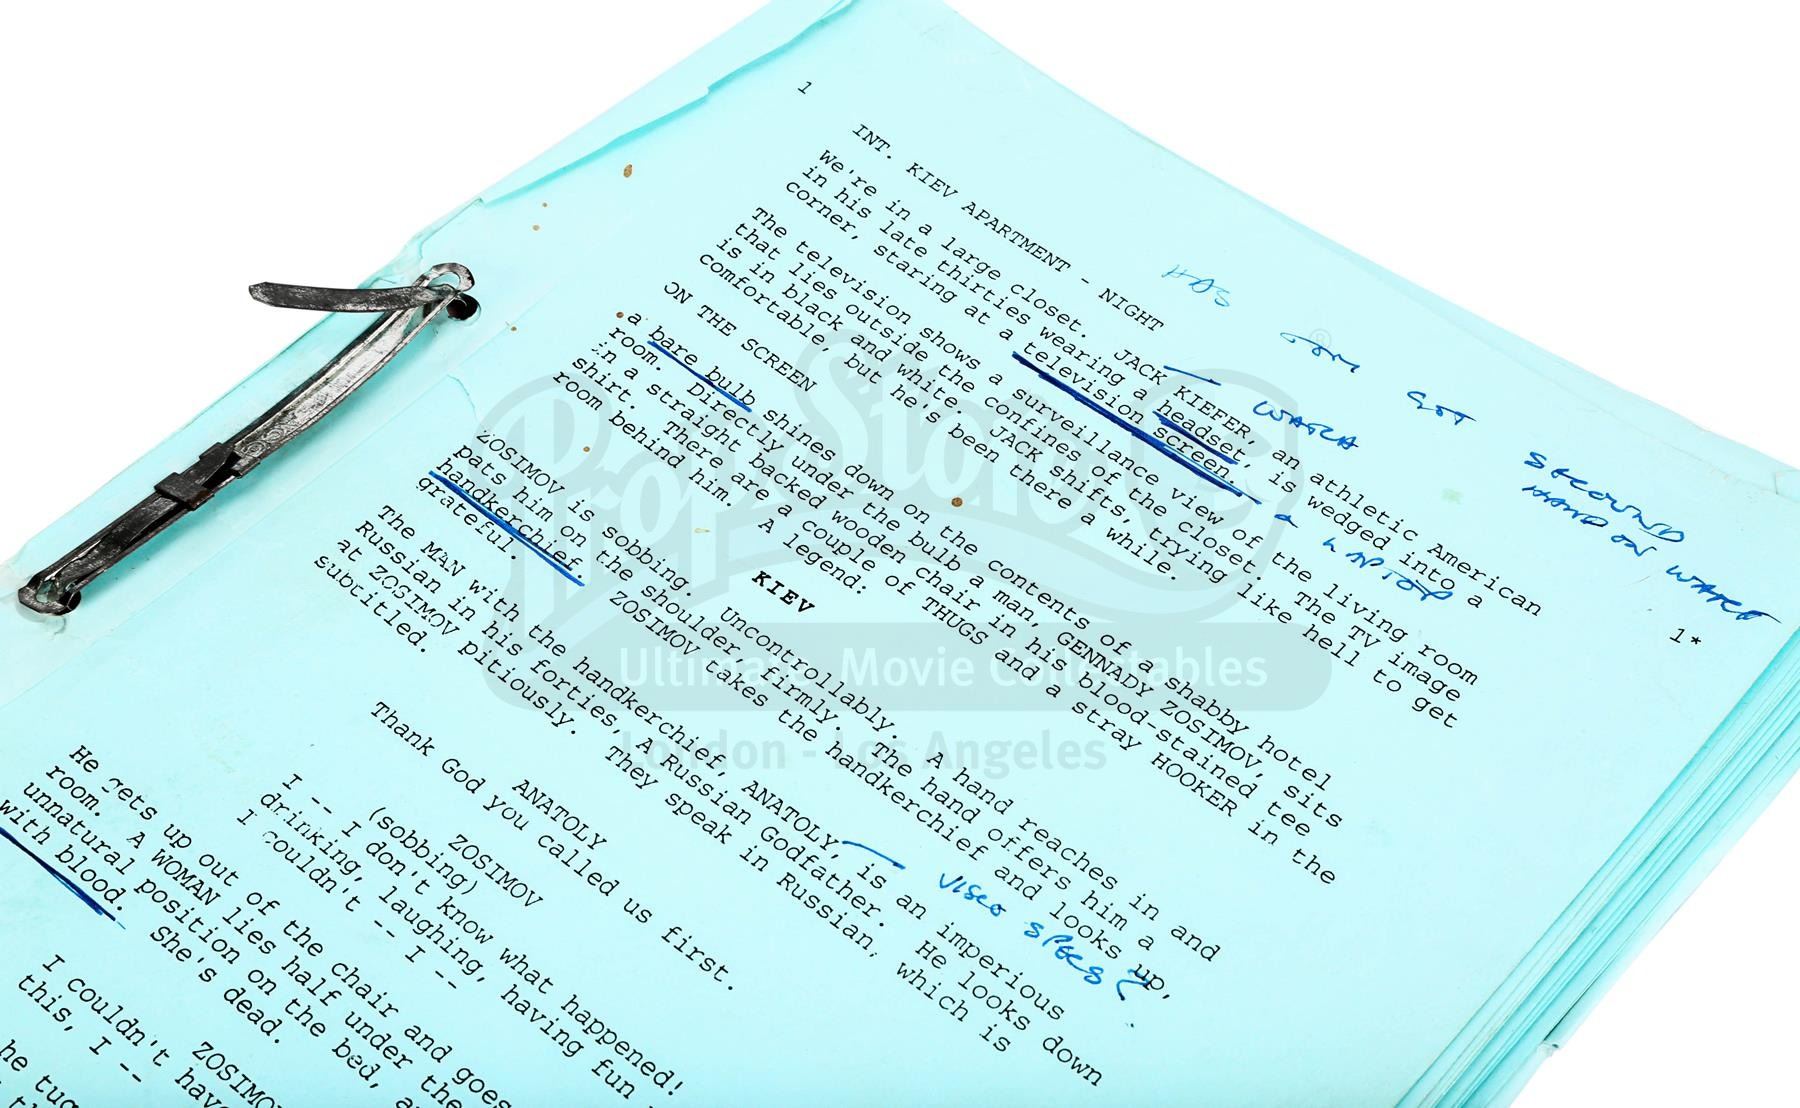 1
HAS TOM GOT SECOUND
HAND ON WATCH
INT. KIEV APARTMENT - NIGHT
1*
We're in a large closet. JACK KIEFER, an athletic American
WATCH
in his late thirties wearing a headset, is wedged into a
corner, staring at a television screen.
a LAPTOP
The television shows a surveillance view of the living room
that lies outside the confines of the closet. The TV image
is in black and white. JACK shifts, trying like hell to get
comfortable, but he's been there a while.
ON THE SCREEN
a bare bulb shines down on the contents of a shabby hotel
room. Directly under the bulb a man, GENNADY ZOSIMOV, sits
in a straight backed wooden chair in his blood-stained tee
shirt. There are a couple of THUGS and a stray HOOKER in the
room behind him. A legend:
KIEV
ZOSIMOV is sobbing. Uncontrollably. A hand reaches in and
pats him on the shoulder firmly. The hand offers him a
handkerchief. ZOSIMOV takes the handkerchief and looks up,
grateful.
The MAN with the handkerchief, ANATOLY, is an imperious
VIDEO SPECS?
Russian in his forties, A Russian Godfather. He looks down
at ZOSIMOV pitiously. They speak in Russian, which is
subtitled.
ANATOLY
Thank God you called us first.
ZOSIMOV
(sobbing)
I -- I don't know what happened!
drinking, laughing, having fun
I couldn't -- I --
He gets up out of the chair and goes
room. A WOMAN lies half under the
unnatural position on the bed,
with blood. She's dead.
ZOSIMOV
I couldn't have
this, I --
Prop Store
Ultimate Movie Collectables
London - Los Angeles